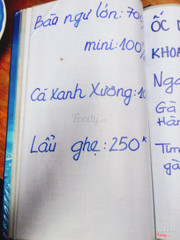 Bào ngư lớn: 70
mini: 100
Cá Xanh Xương: 1
Lẩu ghẹ: 250K
Foody
ỐC
KHOA
Gà
Hàn
gà